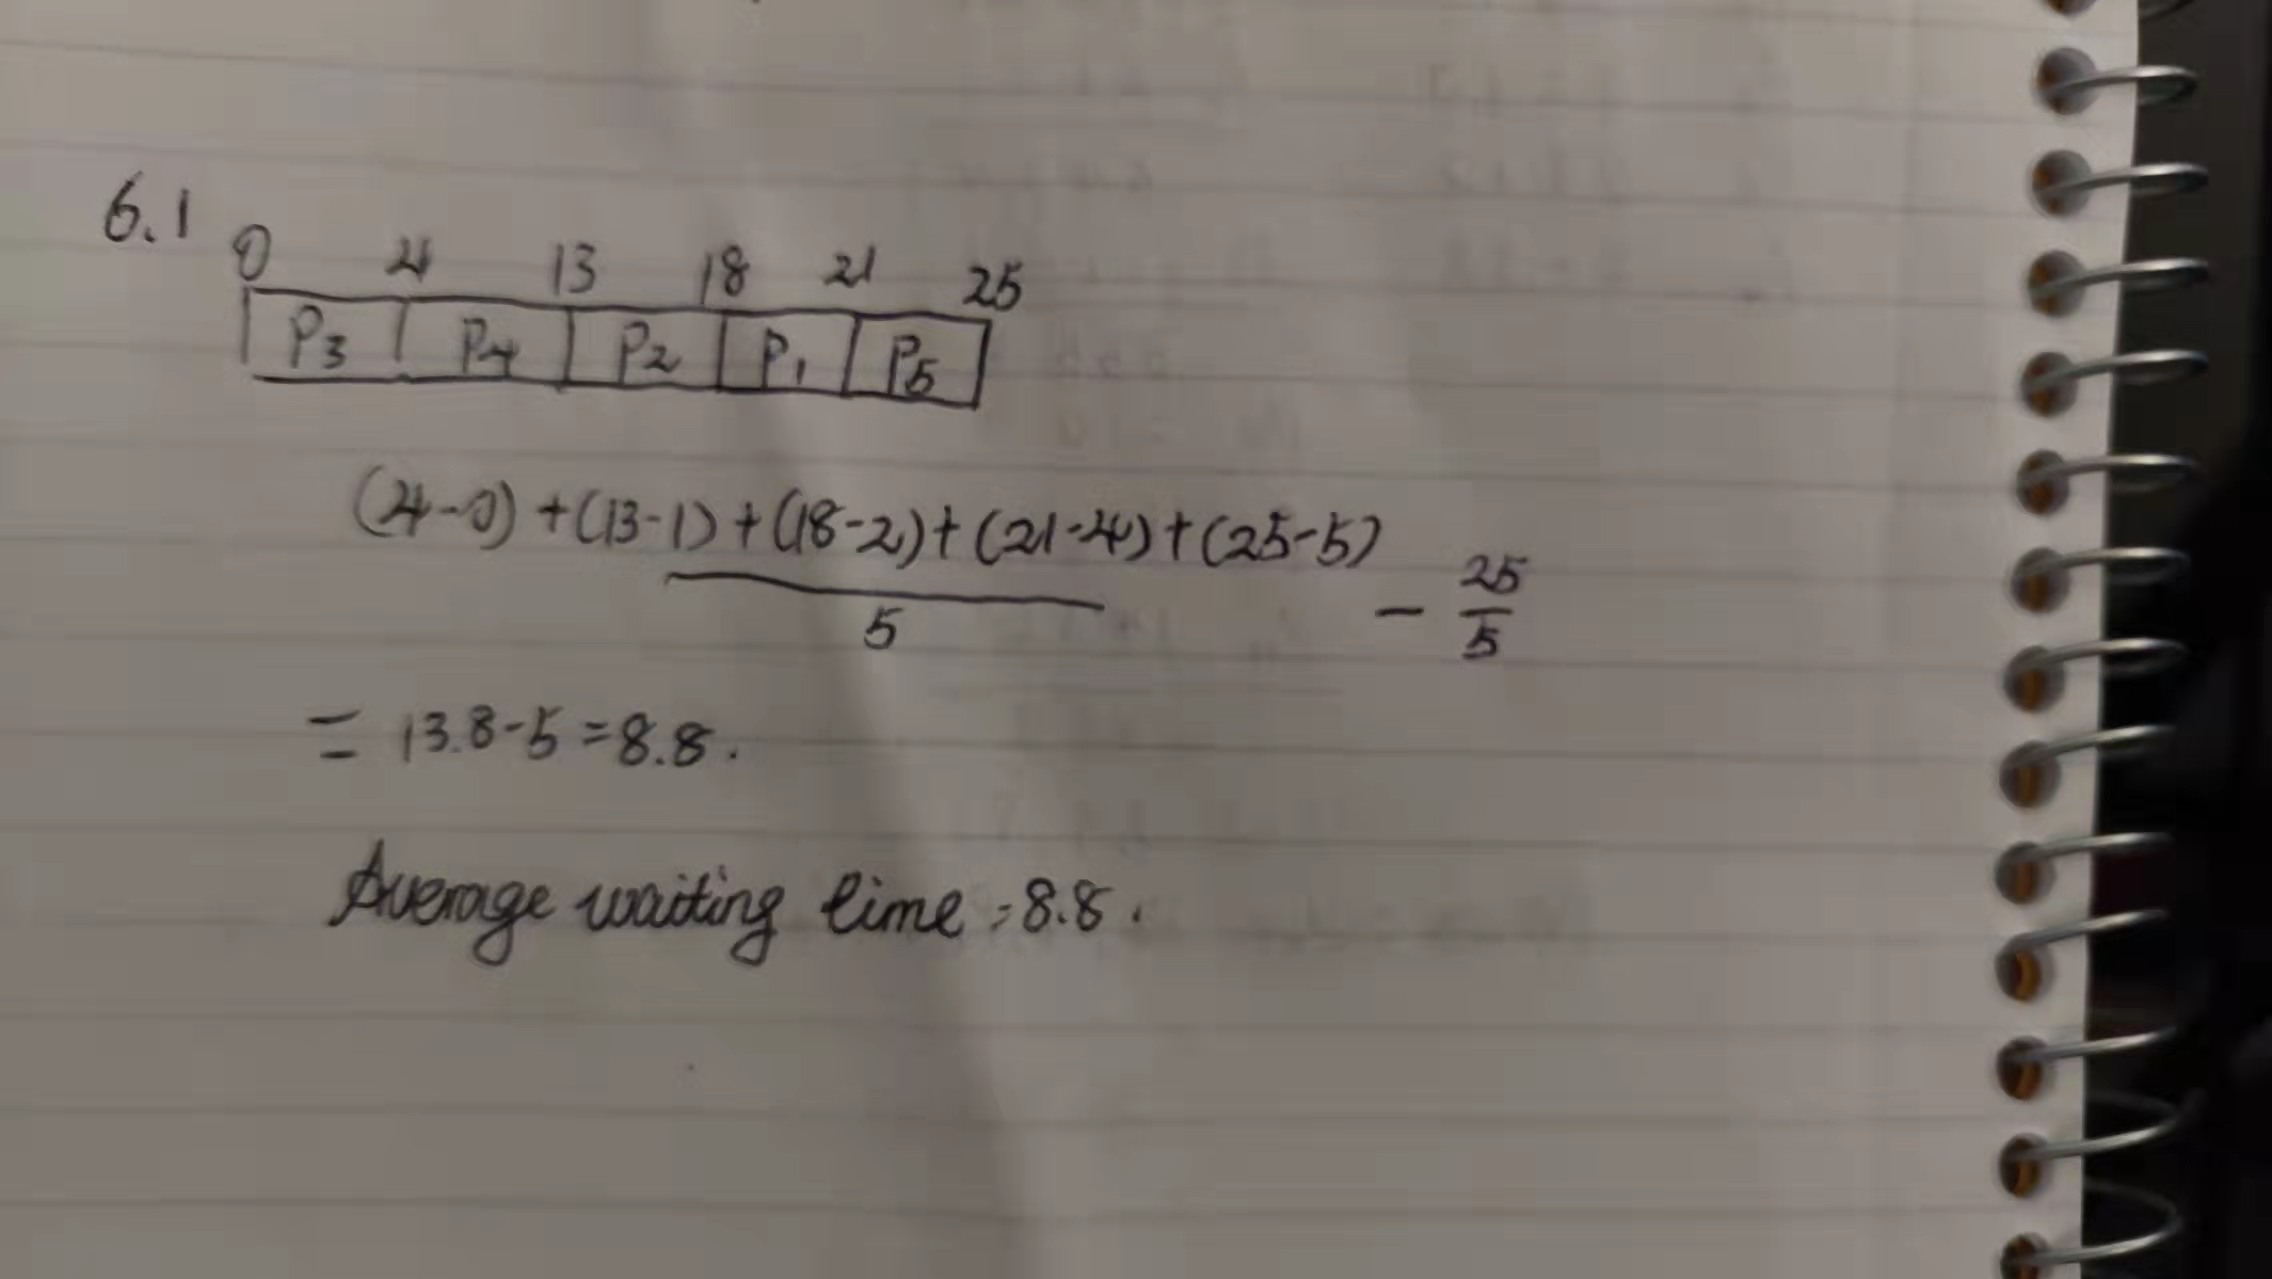 6.1
0 4 13 18 21 25
P3 P4 P2 P1 P5
(4-0) + (13-1) + (18-2) + (21-4) + (25-5)
5 - 25/5
= 13.8-5 = 8.8.
Average waiting time = 8.8.